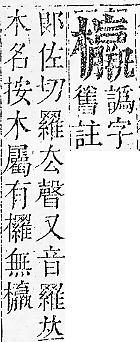 譌字
舊註
郎佐切羅去聲又音羅𠀤
木名按木屬有欏無